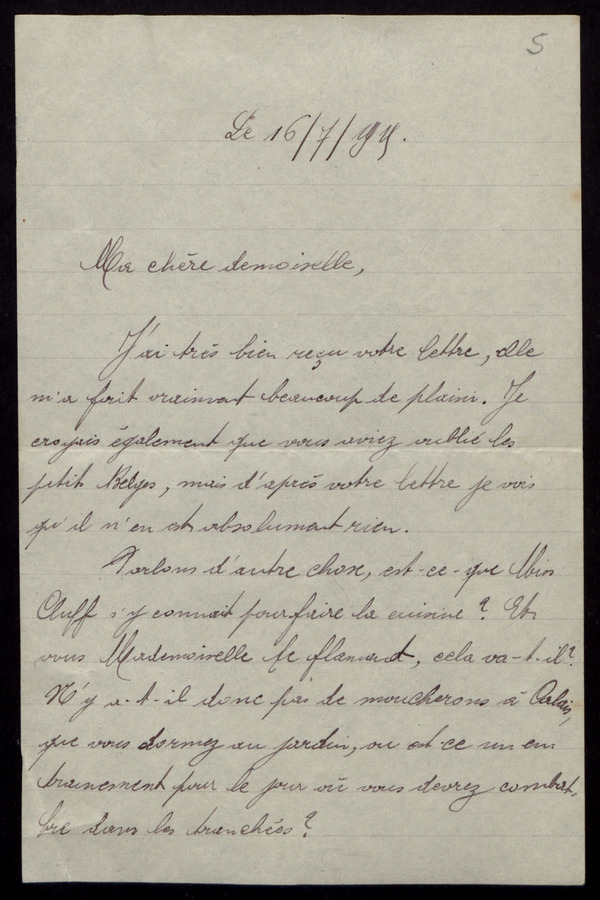 5
Le 16/7/1915.
Ma chère demoiselle,
J'ai très bien reçu votre lettre, elle
m'a fait vraiment beaucoup de plaisir. Je
croyais également que vous aviez oublié les
petit Belges, mais d'après votre lettre je vois
qu'il n'en est absolument rien.
Parlons d'autre chose, est-ce-que Miss
Cluff s'y connait pour faire la cuisine? Et
vous Mademoiselle le flamand, cela va-t-il?
N'y a-t-il donc pas de moucherons à Calais,
que vous dormez au jardin, ou est ce un en-
trainement pour le jour où vous devrez combat-
tre dans les tranchées?